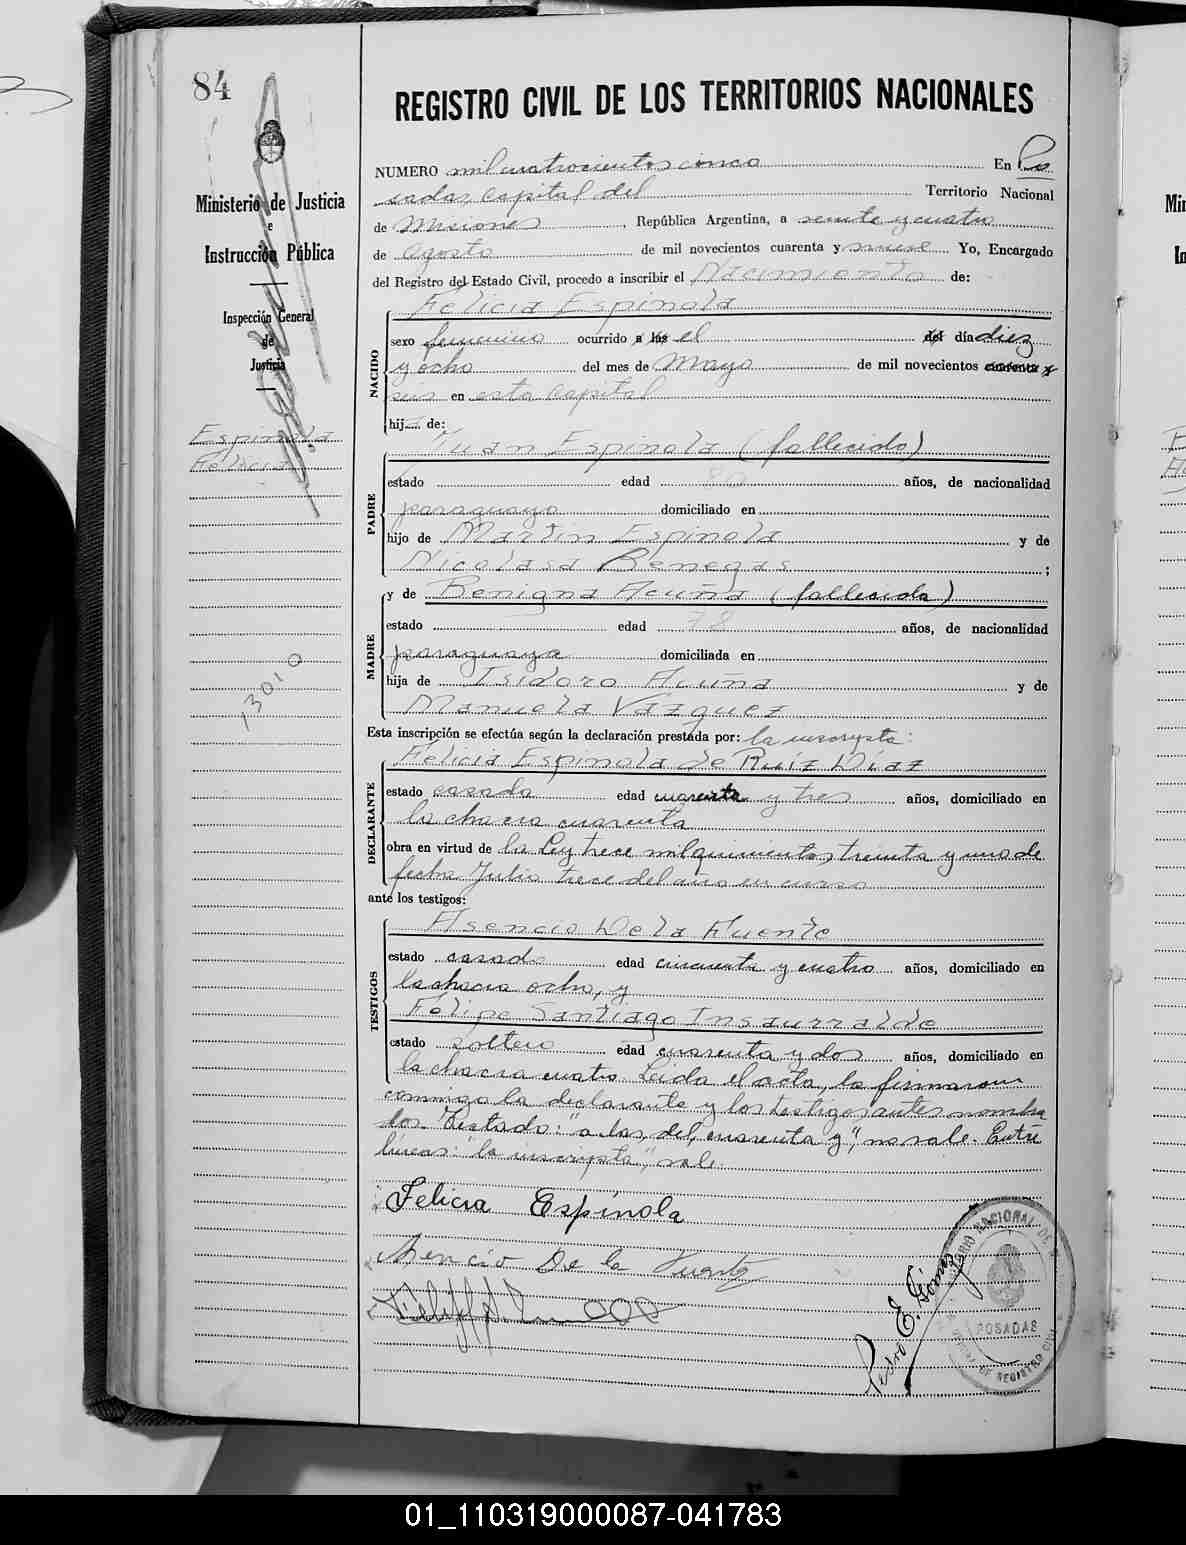 84
REGISTRO CIVIL DE LOS TERRITORIOS NACIONALES
Ministerio de Justicia
e
Instrucción Pública
Inspección General
de
Justicia
Espinola
Felicia
13010
NUMERO mil cuatrocientos cinco En Po
sadas, capital del Territorio Nacional
de Misiones, República Argentina, a veinte y cuatro
de Agosto de mil novecientos cuarenta y nueve Yo, Encargado
del Registro del Estado Civil, procedo a inscribir el Nacimiento de:
NACIDO
Felicia Espinola
sexo femenino ocurrido a las el del día diez
y ocho del mes de Mayo de mil novecientos cuarenta y
seis en esta capital
hij de:
PADRE
Juan Espinola (fallecido)
estado edad 80 años, de nacionalidad
paraguayo domiciliado en
hijo de Martin Espinola y de
Nicolasa Benegas ;
MADRE
y de Benigna Acuña (fallecida)
estado edad 78 años, de nacionalidad
paraguaya domiciliada en
hija de Isidoro Acuña y de
Manuela Vazquez
Esta inscripción se efectúa según la declaración prestada por: la inscripta:
DECLARANTE
Felicia Espinola de Ruíz Díaz
estado casada edad cuarenta y tres años, domiciliado en
la chacra cuarenta
obra en virtud de la Ley trece mil quinientos treinta y uno de
fecha Julio trece del año en curso
ante los testigos:
TESTIGOS
Asencio De la Fuente
estado casado edad cincuenta y cuatro años, domiciliado en
la chacra ocho, y
Felipe Santiago Insaurralde
estado soltero edad cuarenta y dos años, domiciliado en
la chacra cuatro Leida el acta, la firmaron
conmigo la declarante y los testigos antes nombra
dos. Testado: "a las, del, cuarenta y", no vale. Entre
líneas: "la inscripta", vale.
Felicia Espínola
Asencio De la Fuente
Pedro E. Gómez
POSADAS
01_110319000087-041783